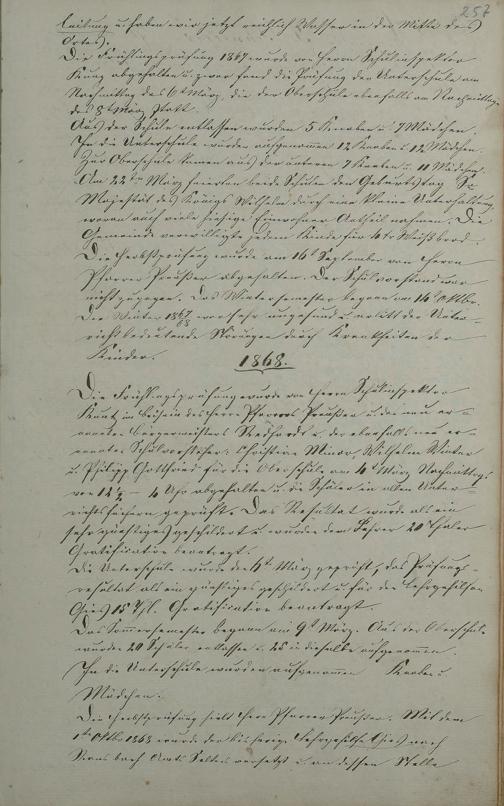 257
leitung u. haben wir jetzt reichlich Wasser in der Mitte des
Ortes.
Die Frühlingsprüfung 1867 wurde von Herrn Schulinspektor
Kunz abgehalten u. zwar fand die Prüfung der Unterschule am
Nachmittag des 6t März, die der Oberschule ebenfalls am Nachmittag
des 8t März statt.
Aus der Schule entlassen wurden 5 Knaben u. 7 Mädchen.
In die Unterschule wurden aufgenommen 12 Knaben u. 12 Mädchen.
Zur Oberschule kamen aus der unteren 7 Knaben u. 11 Mädchen.
Am 22ten März feierten beide Schulen den Geburtstag Sr
Majestät des Königs Wilhelm durch eine kleine Unterhaltung
woran auch viele hiesige Einwohner Antheil nahmen. Die
Gemeinde verwilligte jedem Kinde für 4 kr Weißbrod.
Die Herbstprüfung wurde am 16t September von Herrn
Pfarrer Preußer abgehalten. Der Schulvorstand war
nicht zugegen. Das Wintersemester begann am 14t Oktbr.
Der Winter 1867/68 war sehr ungesund u. erlitt der Unter-
richt bedeutende Störungen durch Krankheiten der
Kinder.
1868.
Die Frühlingsprüfung wurde von Herrn Schulinspektor
Kunz im Beisein des Herrn Pfarrers Preußer u. des neu er-
nannten Bürgermeisters u. der ebenfalls neu er-
nannten Schulvorsteher: Christian Minor, Wilhelm Winter
u. Philipp Gottfried für die Oberschule am 4t März Nachmittags
von 12 1/2 – 4 Uhr abgehalten u. die Schüler in allen Unter-
richtsfächern geprüft. Das Resultat wurde als ein
sehr günstiges geschildert u. wurden dem Lehrer 20 Thaler
Gratification beantragt.
Die Unterschule wurde den t März geprüft, das Prüfungs-
resultat als ein günstiges geschildert u. für den Lehrgehilfen
Gies 15 Thl. Gratification beantragt.
Das Sommersemester begann am 9t März. Aus der Oberschule
wurden 20 Schüler entlassen u. 25 in dieselbe aufgenommen.
In die Unterschule wurden aufgenommen Knaben u.
Mädchen.
Die Herbstprüfung hielt Herr Pfarrer Preußer. Mit dem
1ten Oktbr 1868 wurde der bisherige Lehrgehilfe Gies nach
Amts Selters versetzt u. an dessen Stelle